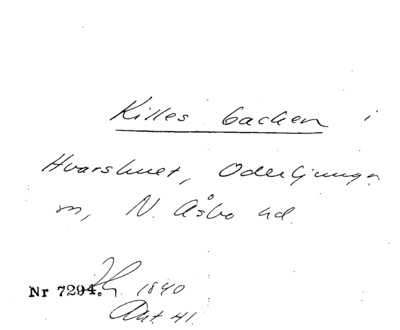 Killes backen i
Hvarslunet, Oderljunga
m, N. Åsbo hd.
1840
Nr 7294.
Ant. 41.